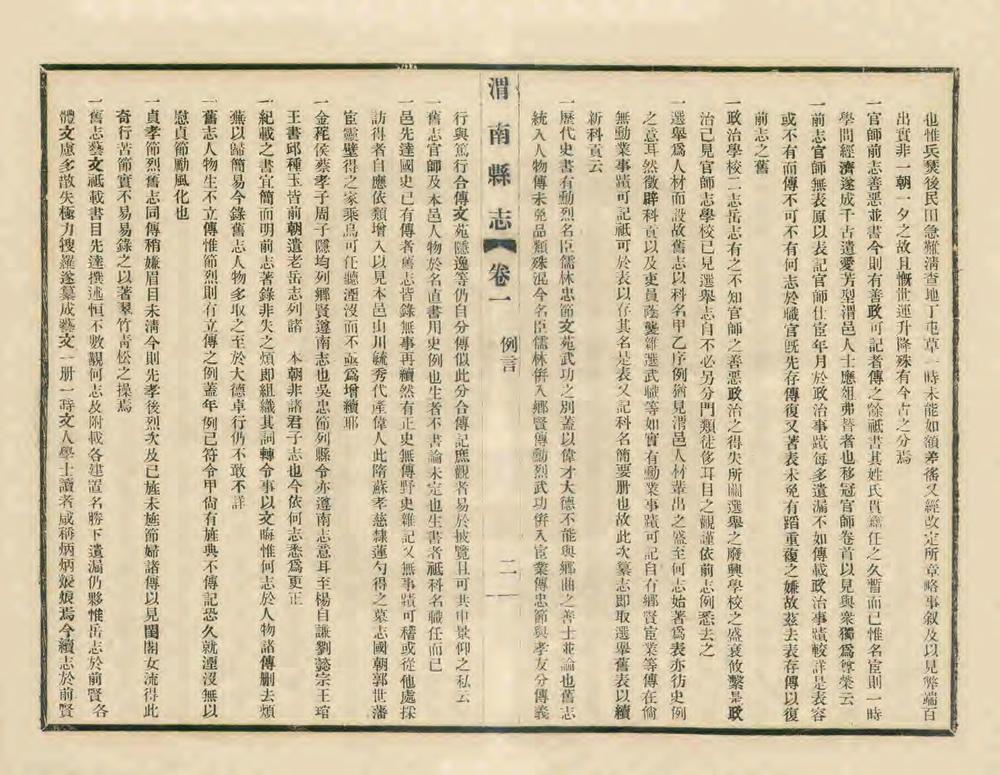 也惟兵燹後民田急難清查地丁屯草一時未能如額差徭又經改定所章略事叙及以見弊端百
出實非一朝一夕之故且慨世運升降殊有今古之分焉
一官師前志善惡並書今則有善政可記者傳之餘祗書其姓氏貫籍任之久暫而已惟名宦則一時
學問經濟遂成千古遺愛芳型渭邑人士應俎弗替者也移冠官師卷首以見與衆獨爲尊榮云
一前志官師無表原以表記官師仕宦年月於政治事蹟每多遺漏不如傳載政治事蹟較詳是表容
或不有而傳不可不有何志於職官既先存傳復又著表未免有蹈重複之嫌故茲去表存傳以復
前志之舊
一政治學校二志岳志有之不知官師之善惡政治之得失所關選舉之廢興學校之盛衰攸繫是政
治已見官師志學校已見選舉志自不必另分門類徒侈耳目之觀謹依前志例悉去之
一選舉爲人材而設故舊志以科名甲乙序例猶見渭邑人材輩出之盛至何志始著爲表亦彷史例
之意耳然徵辟科貢以及吏員蔭襲雜選武職等如實有動業事蹟可記自有鄉賢宦業等傳在倘
無動業事蹟可記祗可於表以存其名是表又記科名簡要册也故此次纂志即取選舉舊表以續
新科貢云
一歷代史書有動烈名臣儒林忠節文苑武功之別蓋以偉才大德不能與鄉曲之善士並論也舊志
統入人物傳未免品類殊混今名臣儒林併入鄉賢傳動烈武功併入宦業傳忠節與孝友分傳義
渭南縣志 卷一 例言 二
行與篤行合傳文苑隱逸等仍自分傳似此分合傳記應觀者易於披覽且可共申景仰之私云
一舊志官師及本邑人物於名直書用史例也生者不書論未定也生書者祗科名職任而已
一邑先達國史已有傳者舊志皆錄無事再續然有正史無傳野史雜記又無事蹟可稽或從他處採
訪得者自應依類增入以見本邑山川毓秀代產偉人此隋蘇孝慈隸蓮勺得之墓志國朝郭世藩
宦靈壁得之家乘烏可任聽湮沒而不亟爲增續耶
一金秺侯蔡孝子周子隱均列鄉賢遵南志也吳忠節列縣令亦遵南志意耳至楊自謙劉懿宗王琯
王書邱種玉皆前朝遺老岳志列諸 本朝非諸君子志也今依何志悉爲更正
一紀載之書宜簡而明前志著錄非失之煩即組織其詞轉令事以文晦惟何志於人物諸傳刪去煩
蕪以歸簡易今錄舊志人物多取之至於大德卓行仍不敢不詳
一舊志人物生不立傳惟節烈則有立傳之例蓋年例已符令甲尙有旌典不傳記恐久就湮沒無以
慰貞節勵風化也
一貞孝節烈舊志同傳稍嫌眉目未淸今則先孝後烈次及已旌未旌節婦諸傳以見閨閣女流得此
奇行苦節實不易易錄之以著翠竹青松之操焉
一舊志藝文祗載書目先達撰述恒不數覯何志及附載各建置名勝下遺漏仍夥惟岳志於前賢各
體文慮多散失極力搜羅遂纂成藝文一册一時文人學士讀者咸稱炳炳烺烺焉今續志於前賢